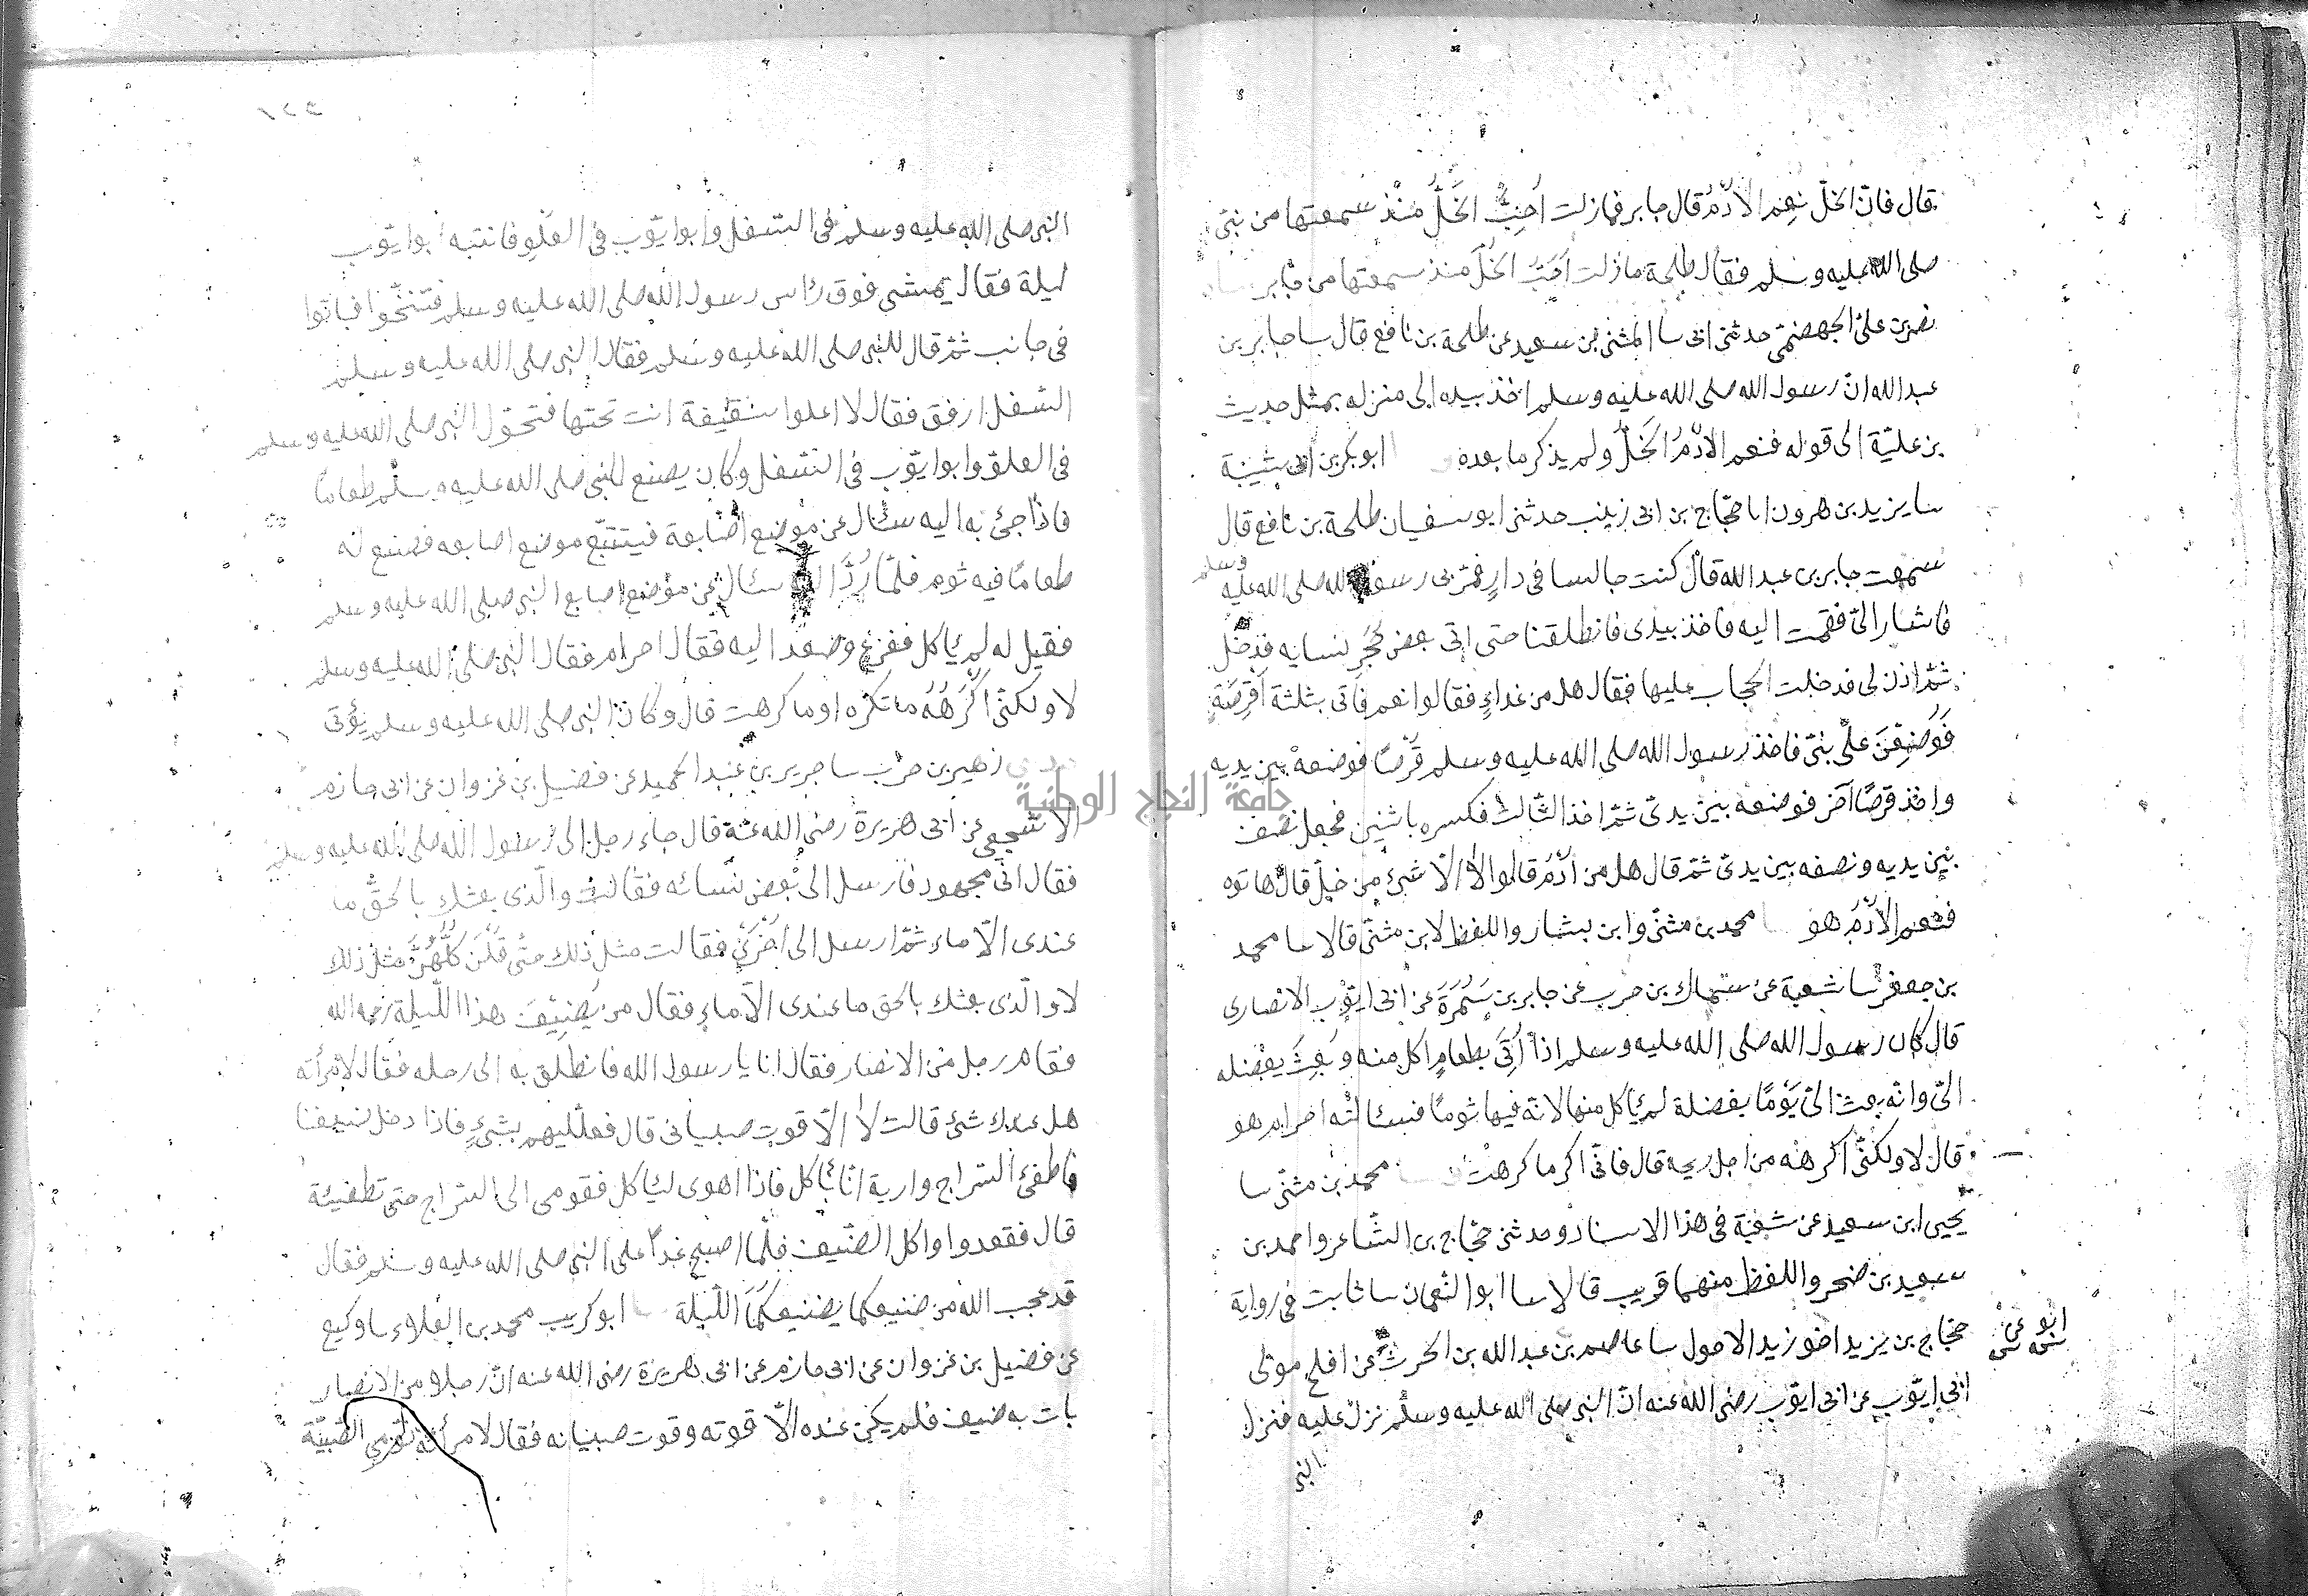 قال فان الخلّ نعم الادُم قال جابر فما زلت اُحِبُّ الخَلَّ مُنْذ سمعتها من نبى
صلى الله عليه وسلم فقال طلحة ما زلت اُحبّ الخلّ منذ سمعتها من جابر
نصر بن على الجهضمى حدثنى ابى سا المثنى بن سعيد عن طلحة بن نافع قال سا جابر بن
عبد الله ان رسول الله صلى الله عليه وسلم اخذ بيده الى منزله بمثل حديث
بن عليّة الى قوله فنعم الادُمُ الخَلُّ ولم يذكر ما بعده ابو بكر بن ابى شيبة
سا يزيد بن هرون انا حجّاج بن ابى زينب حدثنى ابو سفيان طلحة بن نافع قال
سمعت جابر بن عبد الله قال كنت جالسا فى دارٍ فمرّ بى رسول الله صلى الله عليه وسلم
فاشار الىّ فقمت اليه فاخذ بيدى فانطلقنا حتى اتى بعض حُجَرِ نسايه فدخل
ثمّ اذن لى فدخلت الحجاب عليها فقال هل من غداءٍ فقالوا نعم فاتى بثلثة اَقرِصَةٍ
فَوُضِعْنَ على بتىّ فاخذ رسول الله صلى الله عليه وسلم قرصًا فوضعه بين يديه
واخذ قرصًا آخر فوضعه بين يدىّ ثمّ اخذ الثالث فكسره باثنين فجعل نصفه
بين يديه ونصفه بين يدىّ ثمّ قال هل من اُدُم قالوا لا الّا شئ من خلّ قال هاتوه
فنعم الادُمُ هو سا محمد بن مثنّى وابن بشار واللفظ لابن مثنّى قالا سا محمد
بن جعفر سا شعبة عن سماك بن حرب عن جابر بن سَمُرَةَ عن ابى ايّوب الانصارى
قال كان رسول الله صلى الله عليه وسلم اذا اُتِىَ بطعامٍ اكل منه وبَعَثَ بفضله
الىّ وانّه بعث الىّ يَوْمًا بفضلة لم ياكل منها لانّه فيها ثومًا فسئالتُه احرام هو
قال لا ولكنّى اكرهُه من اجل ريحه قال فانّى اكره ما كرهْتَ محمد بن مثنّى سا
يحيى ابن سعيد عن شعبة فى هذا الاسناد وحدثنى حجّاج بن الشّاعر واحمد بن
سعيد بن صخر واللفظ منهما قريب قالا سا ابو النّعمان سا ثابت فى رواية
حجّاج بن يزيد اخو زيد الاحول سا عاصم بن عبد الله بن الحرث عن افلح مولى
ابى ايّوب عن ابى ايّوب رضى الله عنه انّ النبى صلى الله عليه وسلم نزل عليه فنزل
النبى
النبى صلى الله عليه وسلم فى السّفل وابو ايّوب فى العُلْوِ فانتبه ابو ايّوب
ليلة فقال نمشى فوق رأس رسول الله صلى الله عليه وسلم فتنحّوا فباتوا
فى جانب ثمّ قال للنبى صلى الله عليه وسلم فقال النبى صلى الله عليه وسلم
السّفل ارفق فقال لا اعلوا سَقيفة انت تحتها فتحوّل النبى صلى الله عليه وسلم
فى العلو وابو ايّوب فى السّفل وكان يصنع للنبى صلى الله عليه وسلم طعامًا
فاذا جئ به اليه سئال عن موضع اصابعه فيتتبّع موضع اصابعه فصنع له
طعامًا فيه ثوم فلمّا رُدَّ اليه سئال عن موضع اصابع النبى صلى الله عليه وسلم
فقيل له لم ياكل ففزع وصعد اليه فقال احرام فقال النبى صلى الله عليه وسلم
لا ولكنّى اكْرَهُهُ ما تكره او ما كرهت قال وكان النبى صلى الله عليه وسلم يؤتى
زهير بن حرب سا جرير بن عبد الحميد عن فضيل بن غزوان عن ابى حازم
الاشجعى عن ابى هريرة رضى الله عنه قال جاء رجل الى رسول الله صلى الله عليه وسلم
فقال انّى مجهود فارسل الى بعض نسائه فقالت والّذى بعثك بالحقّ ما
عندى الّا ماء ثمّ ارسل الى اُخْرَى فقالت مثل ذلك حتّى قُلْنَ كُلُّهُنَّ مثل ذلك
لا والّذى بعثك بالحق ما عندى الّا ماء فقال من يُضيفُ هذا اللّيلة رحمه الله
فقام رجل من الانصار فقال انا يا رسول الله فانطلق به الى رحله فقال لامرأته
هل عندك شئ قالت لا الّا قوت صبيانى قال فعلّليهم بشئٍ فاذا دخل ضيفنا
فاطفئ السّراج واريه انّا ناكل فاذا اهوى لياكل فقومى الى السّراج حتى تطفيئه
قال فقعدوا واكل الضّيف فلمّا اصبح غدا على النبى صلى الله عليه وسلم فقال
قد عجب الله من صنيعكما بضيفكُمَا اللّيلة ابو كريب محمد بن العلاء سا وكيع
عن فضيل بن غزوان عن ابى حازم عن ابى هريرة رضى الله عنه انّ رجلا من الانصار
بات به ضيف فلم يكن عنده الّا قوته وقوت صبيانه فقال لامرأته نوّمى الصّبية
جامعة النجاح الوطنية